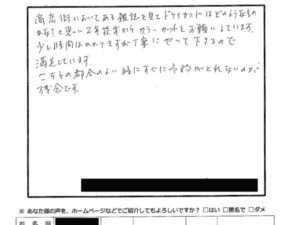 商店街においてある雑誌を見てドライカットはどのようなもの
かな？と思い
カットをお願いしています。
少し時間はかかりますが丁寧にやって下さるので
満足しています。
こちらの都合のよい時にすぐに予約がとれないのが
残念です。
※ あなた様の声を、ホームページなどでご紹介してもよろしいですか？ □はい □匿名で □ダメ